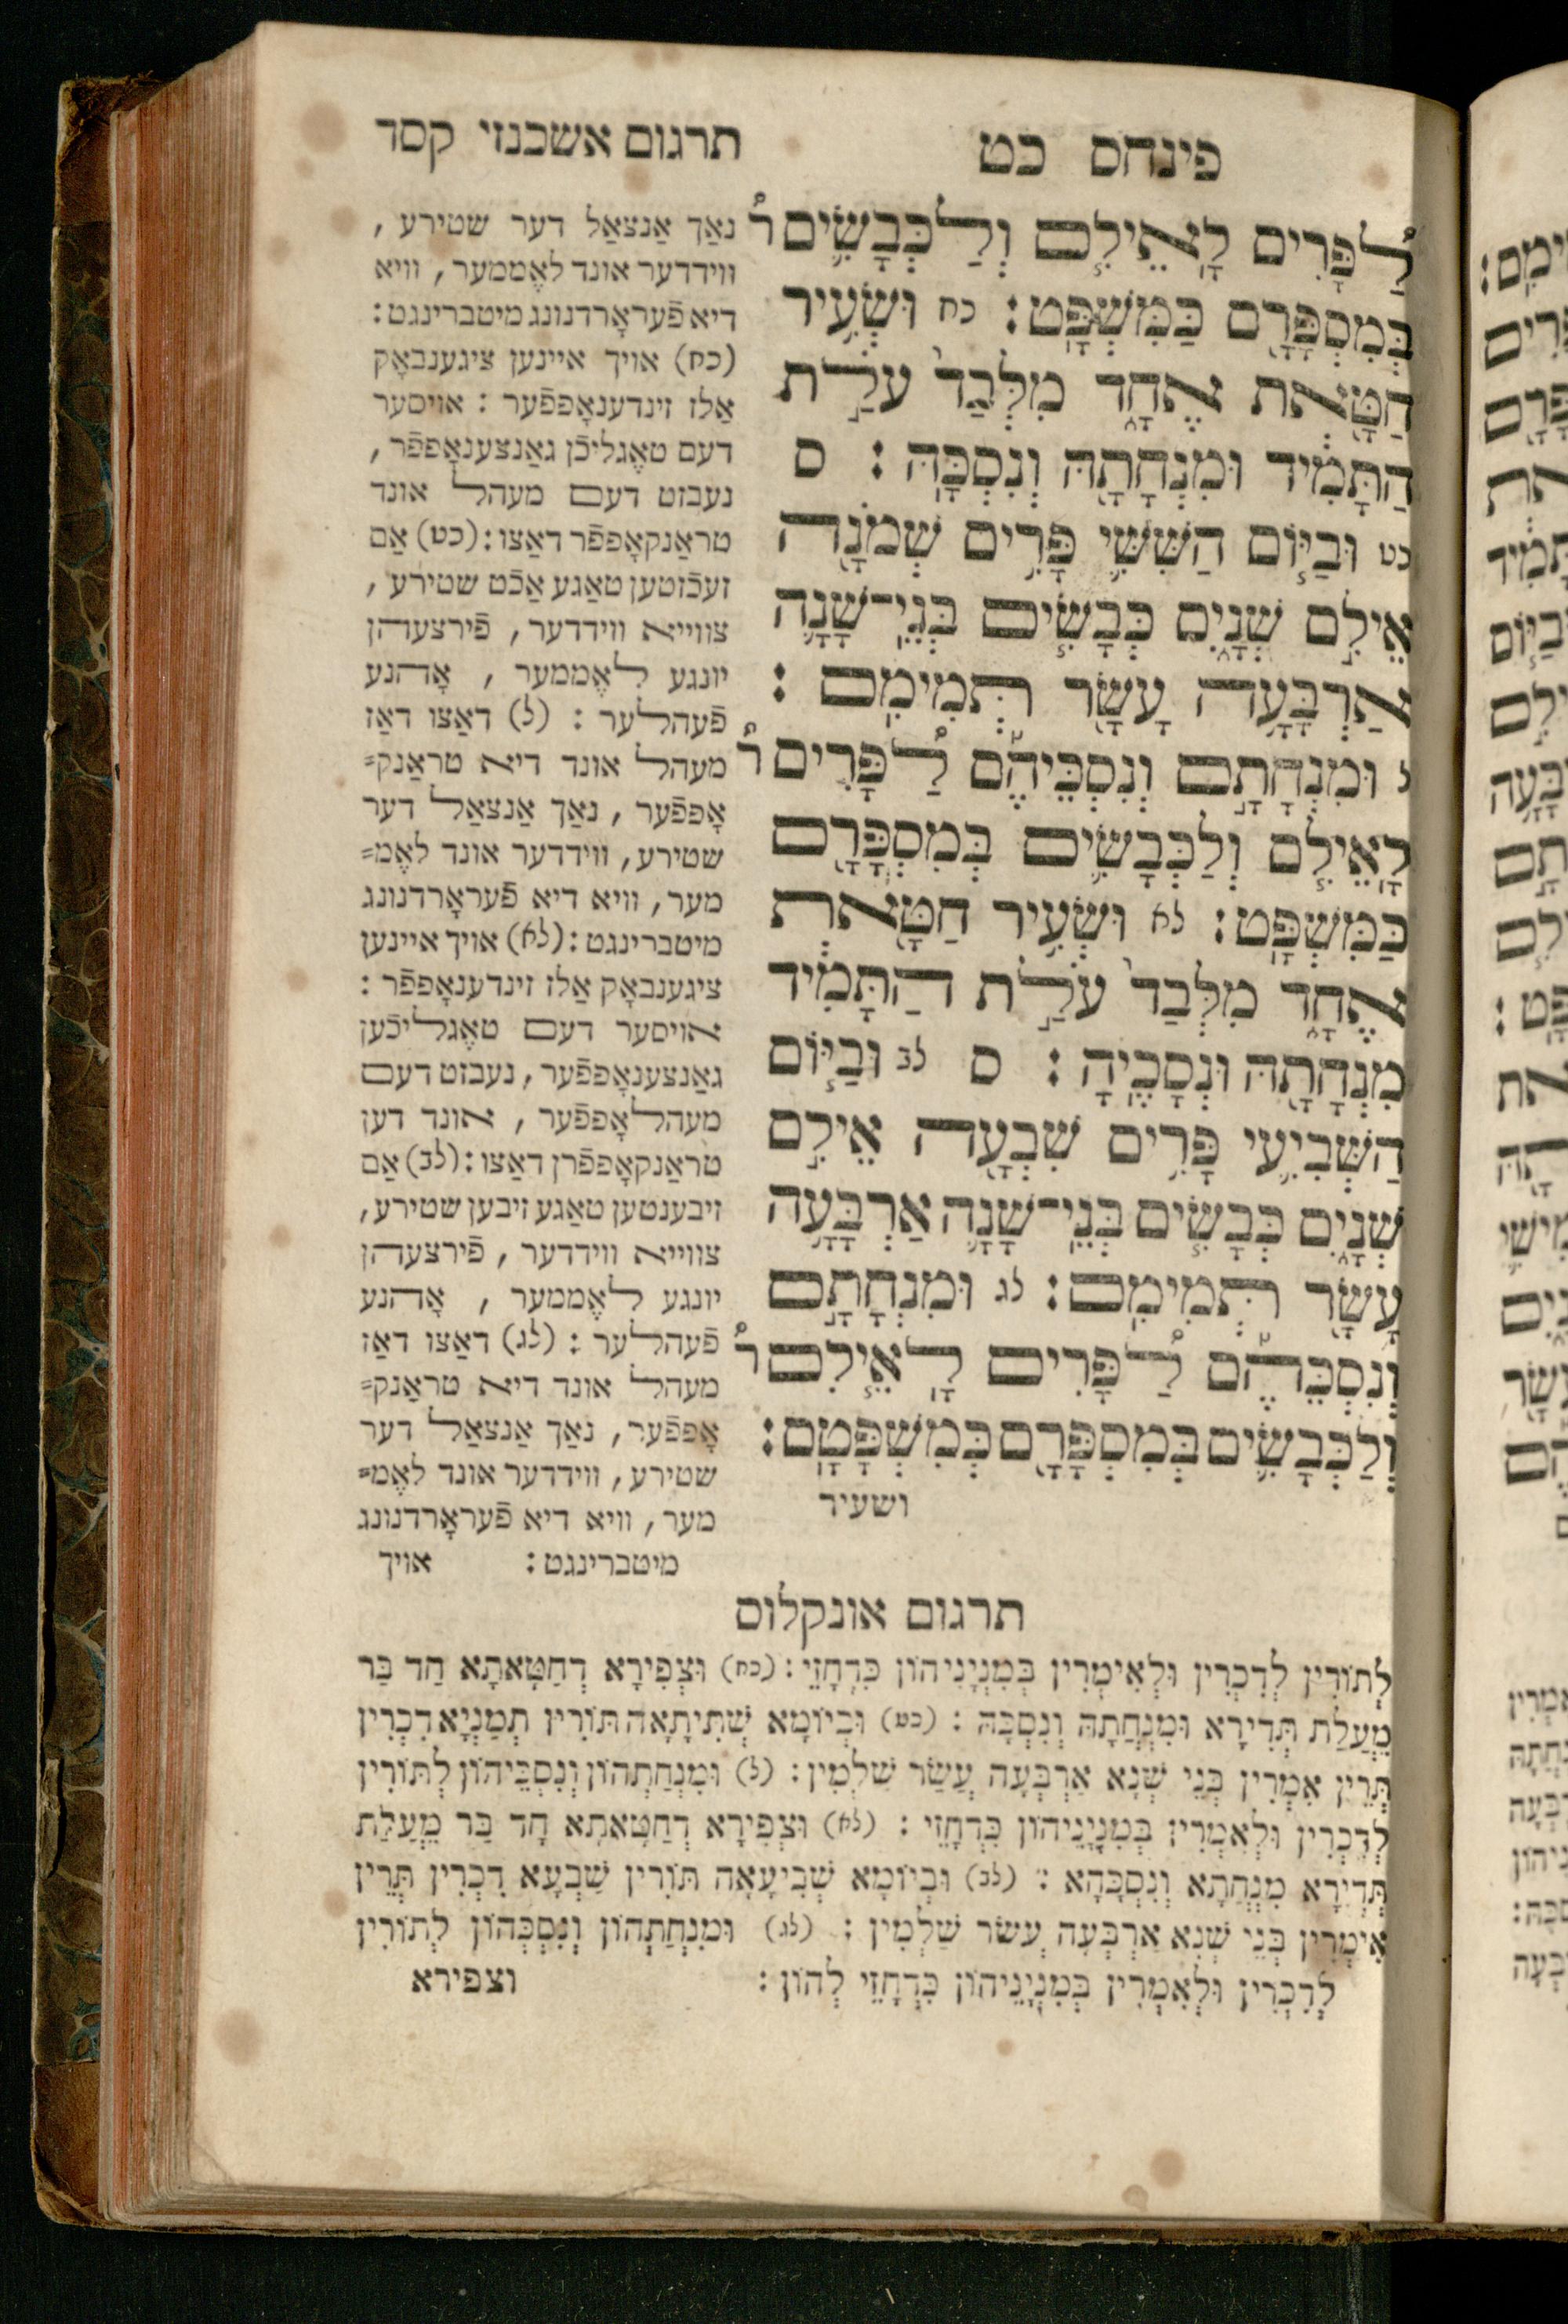 פינחס כט
תרגום אשכנזי קסד
לַפָּרִים לָאֵילִם וְלַכְּבָשִׂים
בְּמִסְפָּרָם כַּמִּשְׁפָּט: כח וּשְׂעִיר
חַטָּאת אֶחָד מִלְּבַד עֹלַת
הַתָּמִיד וּמִנְחָתָהּ וְנִסְכָּהּ: ס
כט וּבַיּוֹם הַשִּׁשִּׁי פָּרִים שְׁמֹנָה
אֵילִם שְׁנָיִם כְּבָשִׂים בְּנֵי־שָׁנָה
אַרְבָּעָה עָשָׂר תְּמִימִם:
ל וּמִנְחָתָם וְנִסְכֵּיהֶם לַפָּרִים
לָאֵילִם וְלַכְּבָשִׂים בְּמִסְפָּרָם
כַּמִּשְׁפָּט: לא וּשְׂעִיר חַטָּאת
אֶחָד מִלְּבַד עֹלַת הַתָּמִיד
מִנְחָתָהּ וּנְסָכֶיהָ: ס לב וּבַיּוֹם
הַשְּׁבִיעִי פָּרִים שִׁבְעָה אֵילִם
שְׁנָיִם כְּבָשִׂים בְּנֵי־שָׁנָה אַרְבָּעָה
עָשָׂר תְּמִימִם: לג וּמִנְחָתָם
וְנִסְכֵּהֶם לַפָּרִים לָאֵילִם
וְלַכְּבָשִׂים בְּמִסְפָּרָם כְּמִשְׁפָּטָם:
ושעיר
נאַך אַנצאַל דער שטירע,
ווידדער אונד לאֶממער, וויא
דיא פֿעראָרדנונג מיטברינגט:
(כח) אויך איינען ציגענבאָק
אַלז זינדענאָפפֿער: אויסער
דעם טאֶגליכֿן גאַנצענאָפפֿר,
נעבזט דעם מעהל אונד
טראַנקאָפפֿר דאַצו: (כט) אַם
זעכֿזטען טאַגע אַכֿט שטירע,
צווייא ווידדער, פֿירצעהן
יונגע לאֶממער, אָהנע
פֿעהלער: (ל) דאַצו דאַז
מעהל אונד דיא טראַנק=
אָפפֿער, נאַך אַנצאַל דער
שטירע, ווידדער אונד לאֶמ=
מער, וויא דיא פֿעראָרדנונג
מיטברינגט: (לא) אויך איינען
ציגענבאָק אַלז זינדענאָפפֿר:
אויסער דעם טאֶגליכֿען
גאַנצענאָפפֿער, נעבזט דעם
מעהלאָפפֿער, אונד דען
טראַנקאָפפֿרן דאַצו: (לב) אַם
זיבענטען טאַגע זיבען שטירע,
צווייא ווידדער, פֿירצעהן
יונגע לאֶממער, אָהנע
פֿעהלער: (לג) דאַצו דאַז
מעהל אונד דיא טראַנק=
אָפפֿער, נאַך אַנצאַל דער
שטירע, ווידדער אונד לאֶמ=
מער, וויא דיא פֿעראָרדנונג
מיטברינגט: אויך
תרגום אונקלוס
לְתוֹרִין לְדִכְרִין וּלְאִימְרִין בְּמִנְיָנֵיהוֹן כִּדְחָזֵי: (כח) וּצְפִירָא דְחַטָּאתָא חַד בַּר
מֵעֲלַת תְּדִירָא וּמִנְחֲתָהּ וְנִסְכָּהּ: (כט) וּבְיוֹמָא שְׁתִיתָאָה תּוֹרִין תְּמַנְיָא דִכְרִין
תְּרֵין אִמְרִין בְּנֵי שְׁנָא אַרְבְּעָה עֲשַׂר שַׁלְמִין: (ל) וּמִנְחַתְהוֹן וְנִסְכֵּיהוֹן לְתוֹרִין
לְדִכְרִין וּלְאִמְרִין בְּמִנְיָנֵיהוֹן כִּדְחָזֵי: (לא) וּצְפִירָא דְחַטָּאתָא חָד בַּר מֵעֲלַת
תְּדִירָא מִנְחֲתָא וְנִסְכָּהָא: (לב) וּבְיוֹמָא שְׁבִיעָאָה תּוֹרִין שַׁבְעָא דִכְרִין תְּרֵין
אִימְרִין בְּנֵי שְׁנָא אַרְבְּעָה עֲשׂר שַׁלְמִין: (לג) וּמִנְחַתְהוֹן וְנִסְכְּהוֹן לְתוֹרִין
לְדִכְרִין וּלְאִמְרִין בְּמִנְיָנֵיהוֹן כִּדְחָזֵי לְהוֹן: וצפירא